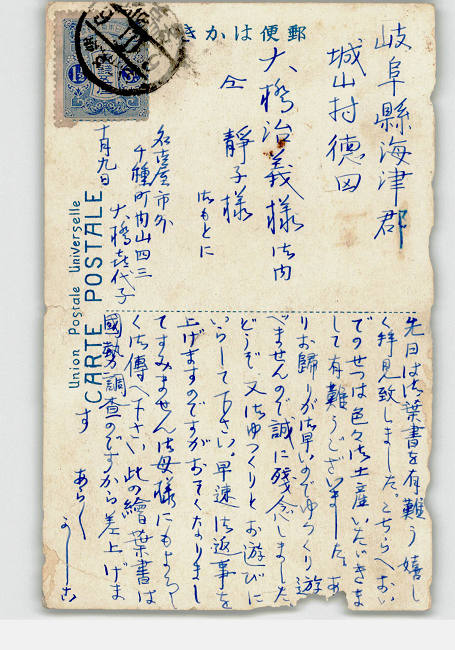 郵便はかき
岐阜縣海津郡
城山村徳田
大橋治義様御内
仝 静子様
御もとに
名古屋市外
千種町内山四三
大橋喜代子
十月九日
Union Postale Universelle
CARTE POSTALE
1½
先日は御葉書を有難う嬉し
く拝見致しました。こちらへおい
でのせつは色々御土産いたゞきま
して有難うございました。あま
りお歸りが御早いのでゆつくり遊
べませんので誠に残念しました
どうぞ又御ゆつくりとお遊びに
いらして下さい。早速御返事を
上げますのですがおそくなりまし
てすみません御母様にもよろし
く御傳へ下さい此の繪葉書は
國勢調査のですから差上げま
す あら〳〵かしこ